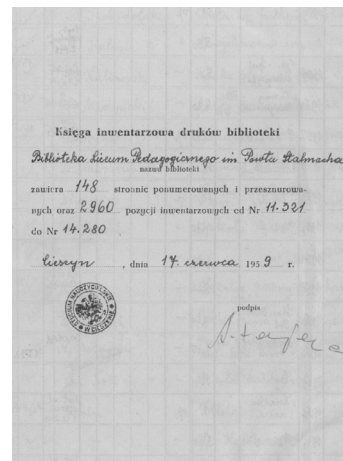 Księga inwentarzowa druków biblioteki
Biblioteka Liceum Pedagogicznego im Pawła Stalmacha
nazwa biblioteki
zawiera 148 stronnic ponumerowanych i przesznurowa-
nych oraz 2960 pozycji inwentarzowych od Nr 11.321
do Nr 14.280
Cieszyn, dnia 17. czerwca 1959 r.
podpis